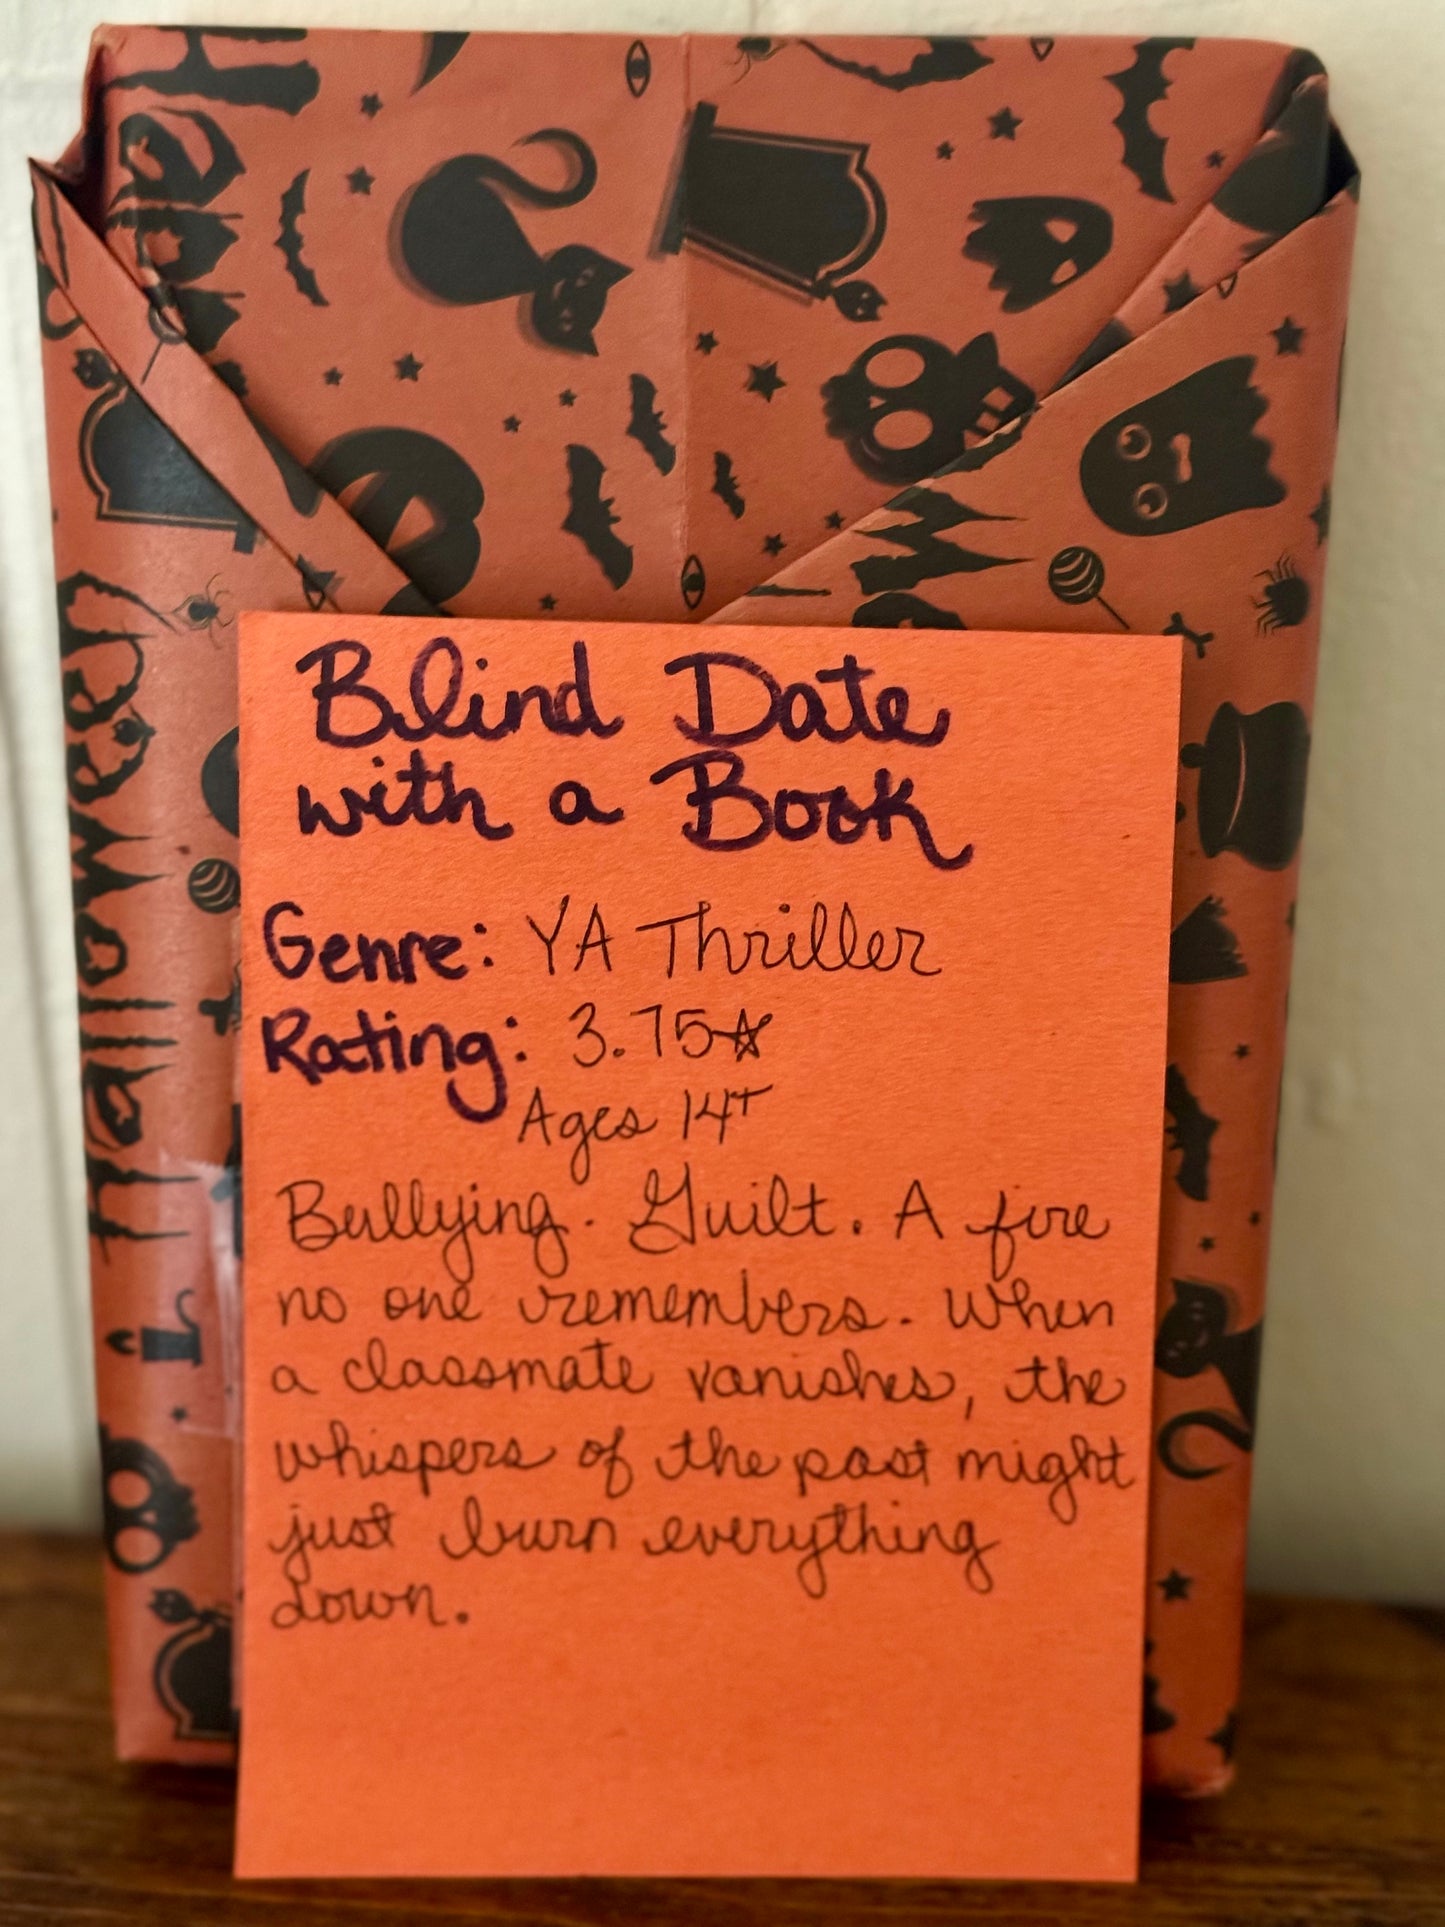 Halloween
Blind Date
with a Book
Genre: YA Thriller
Rating: 3.75☆
Ages 14+
Bullying. Guilt. A fire
no one remembers. When
a classmate vanishes, the
whispers of the past might
just burn everything
down.